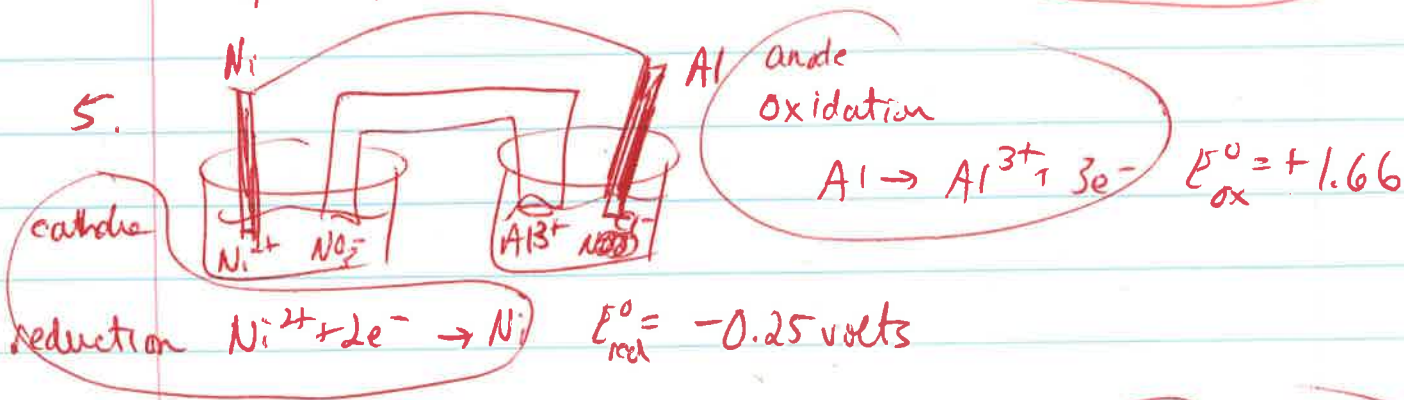 Ni
Al anode
5.
oxidation
Al → Al³⁺ + 3e⁻ E⁰ox = +1.66
cathode
Ni²⁺ NO₃⁻ Al3⁺ Cl⁻
reduction Ni²⁺+2e⁻ → Ni E⁰red = -0.25 volts